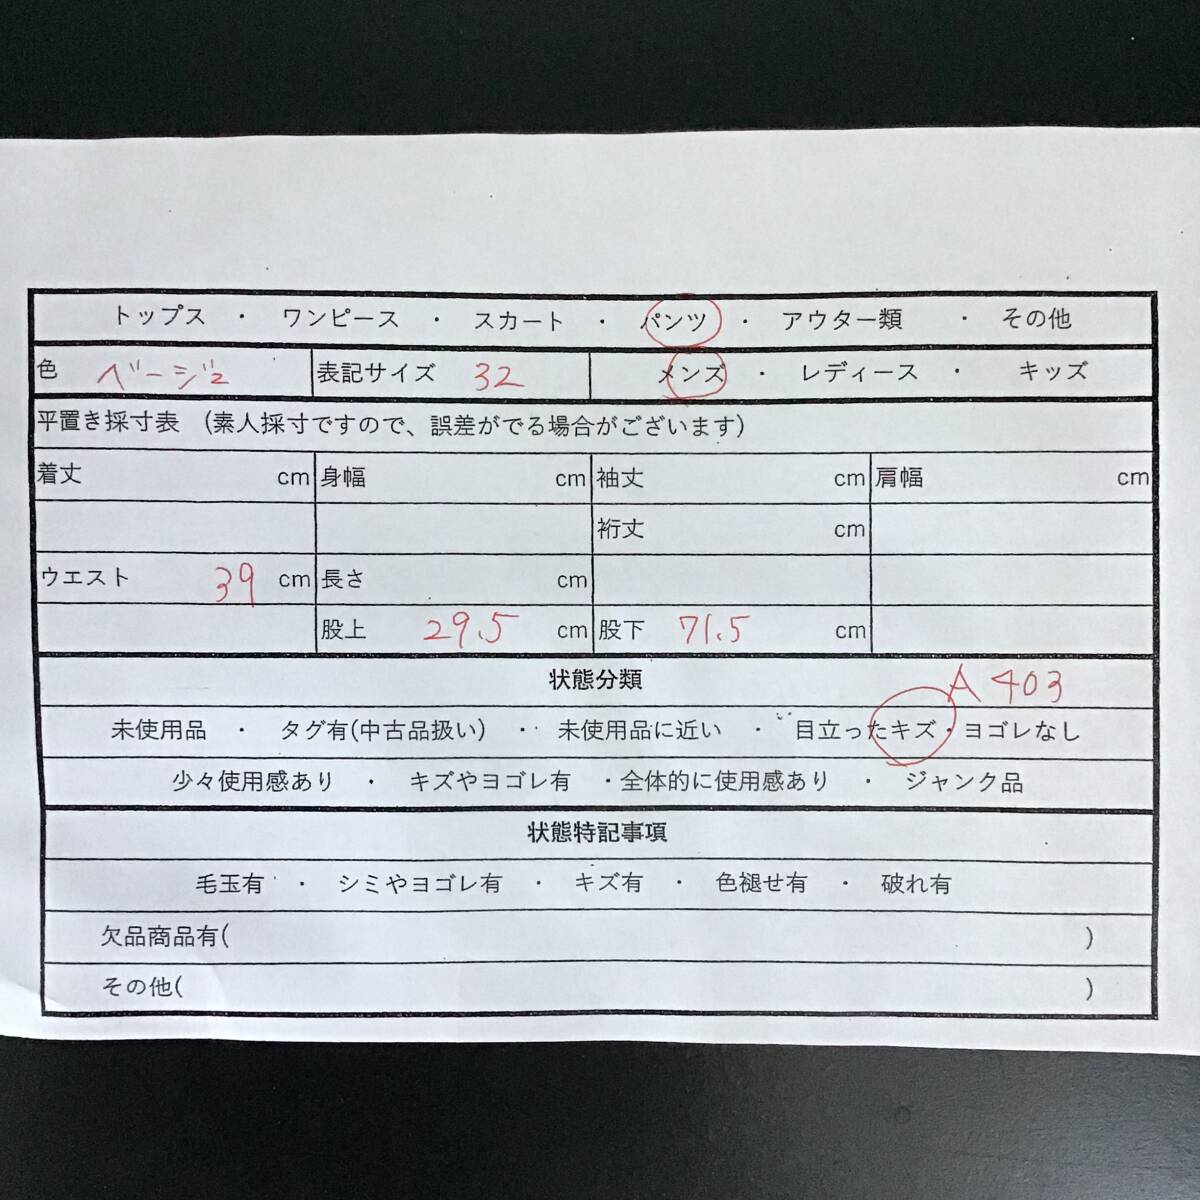 トップス ・ ワンピース ・ スカート ・ パンツ ・ アウター類 ・ その他
色 ベージュ 表記サイズ 32 メンズ ・ レディース ・ キッズ
平置き採寸表 (素人採寸ですので、誤差がでる場合がございます)
着丈 cm 身幅 cm 袖丈 cm 肩幅 cm
裄丈 cm
ウエスト 39 cm 長さ cm
股上 29.5 cm 股下 71.5 cm
状態分類 A403
未使用品 ・ タグ有(中古品扱い) ・ 未使用品に近い ・ 目立ったキズ・ヨゴレなし
少々使用感あり ・ キズやヨゴレ有 ・全体的に使用感あり ・ ジャンク品
状態特記事項
毛玉有 ・ シミやヨゴレ有 ・ キズ有 ・ 色褪せ有 ・ 破れ有
欠品商品有( )
その他( )